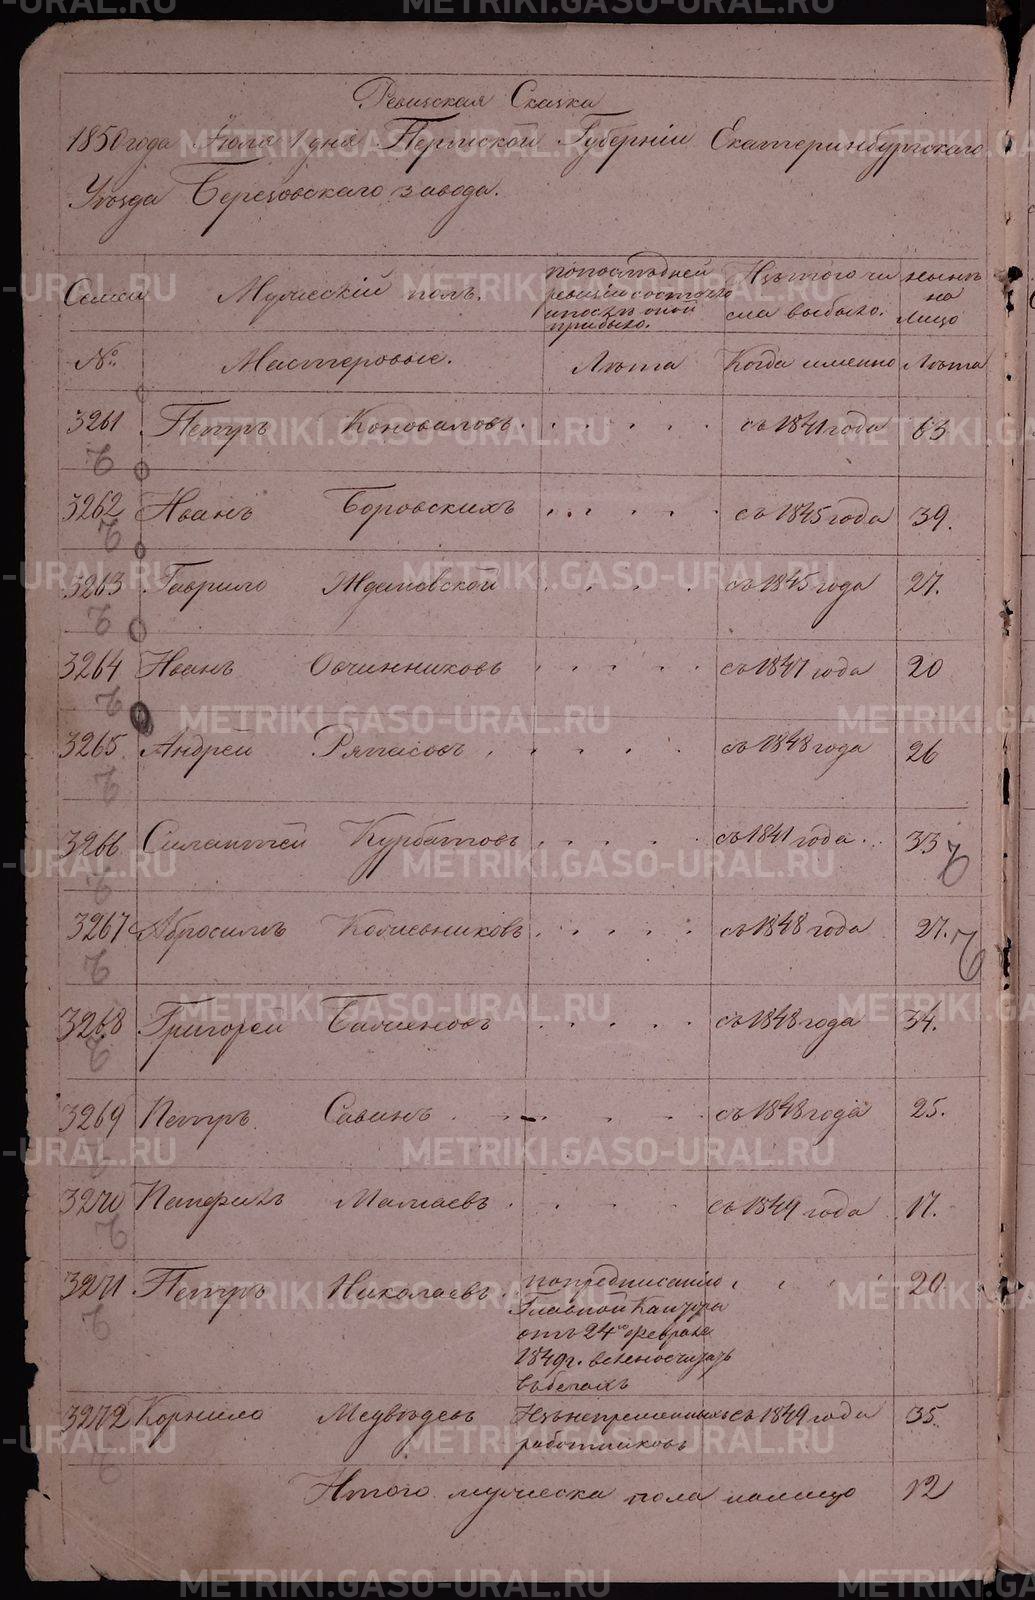 Ревизская Сказка
1850 года Июля 1 дня Пермской Губернiи Екатеринбургскаго
Уѣзда Березовскаго завода.
Семьи Мужескiй полъ. по послѣдней ревизiи состояло и послѣ оной прибыло. Изъ того числа выбыло. нынѣ на Лицо
№ Мастеровые. Лѣта Когда именно Лѣта
3261 Петръ Коноваловъ съ 1841 года 63
3262 Иванъ Боровскихъ съ 1845 года 39.
3263 Гаврило Ждановской съ 1845 года 27.
3264 Иванъ Овчинниковъ съ 1847 года 20
3265 Андрей съ 1848 года 26
3266 Силантей Курбатовъ съ 1841 года 33
3267 Абросимъ съ 1848 года 27.
3268 Григорей съ 1848 года 34.
3269 Петръ Савинъ съ 1848 года 25.
3270 Памфилъ Мамаевъ съ 1849 года 17.
3271 Петръ Николаевъ по предписанiю 20
Главной Канторы
отъ 24го февраля
1849 г. велено считать
въ бегахъ
3272 Корнило Медвѣдевъ Изъ непременныхъ съ 1849 года 35.
работниковъ
Итого мужеска пола налицо 12
METRIKI.GASO-URAL.RU